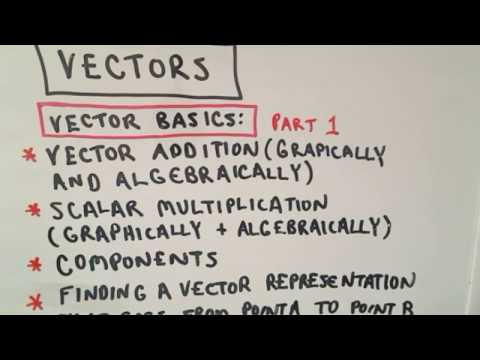 VECTORS
VECTOR BASICS: PART 1
* VECTOR ADDITION (GRAPICALLY
AND ALGEBRAICALLY)
* SCALAR MULTIPLICATION
(GRAPHICALLY + ALGEBRAICALLY)
* COMPONENTS
* FINDING A VECTOR REPRESENTATION
THAT GOES FROM POINT A TO POINT B